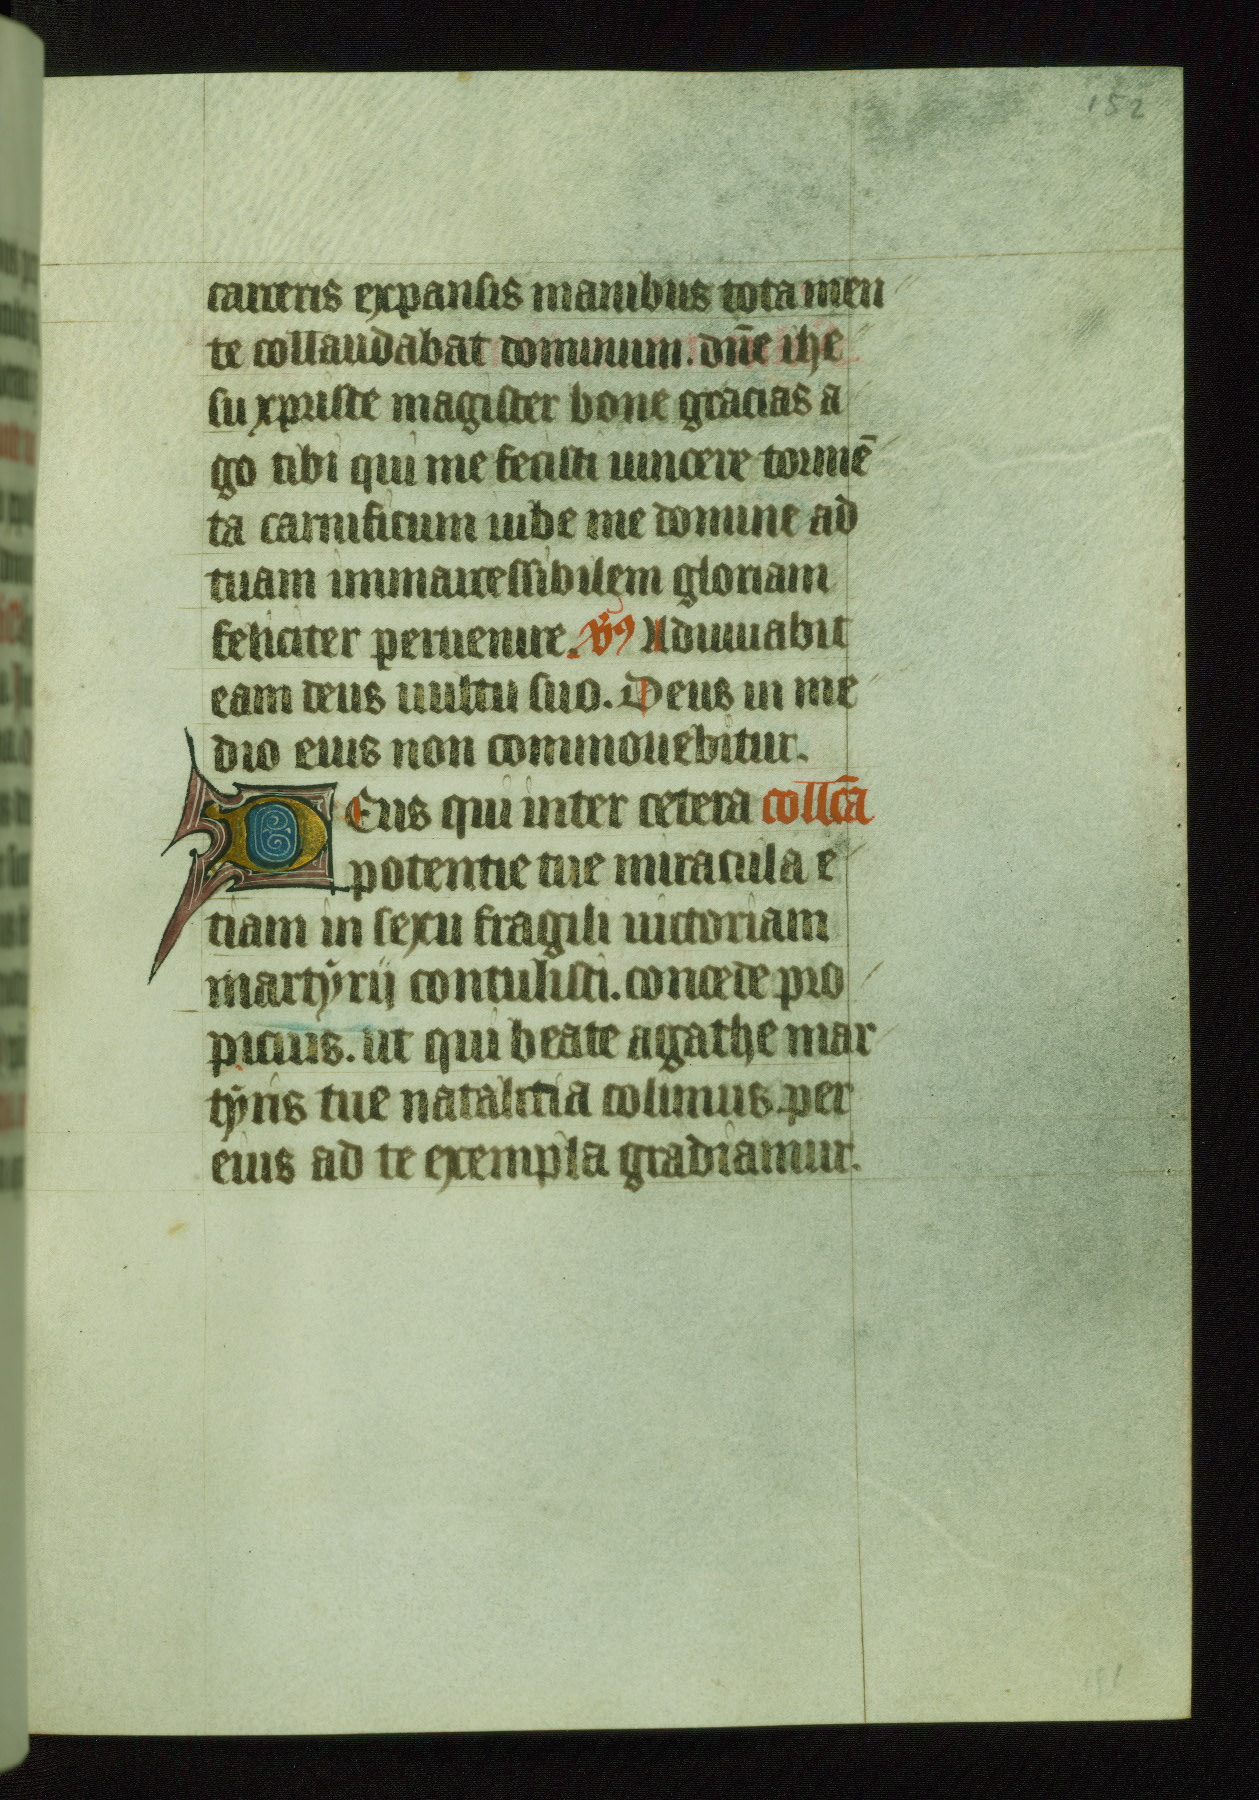 152
carceris expansis manibus tota men
te collaudabat dominum. dn̄e ihe
su xpriste magister bone gracias a
go tibi qui me fecisti uincere tormē
ta carnificum iube me domine ad
tuam immarcessibilem gloriam
feliciter peruenire. Adiuuabit
eam deus uultu suo. Deus in me
dio eius non commouebitur.
DEus qui inter cetera collc̄a
potentie tue miracula e
tiam in sexu fragili uictoriam
martyrii contulisti. concede pro
picius. ut qui beate agathe mar
tyris tue natalitia colimus per
eius ad te exempla gradiamur.